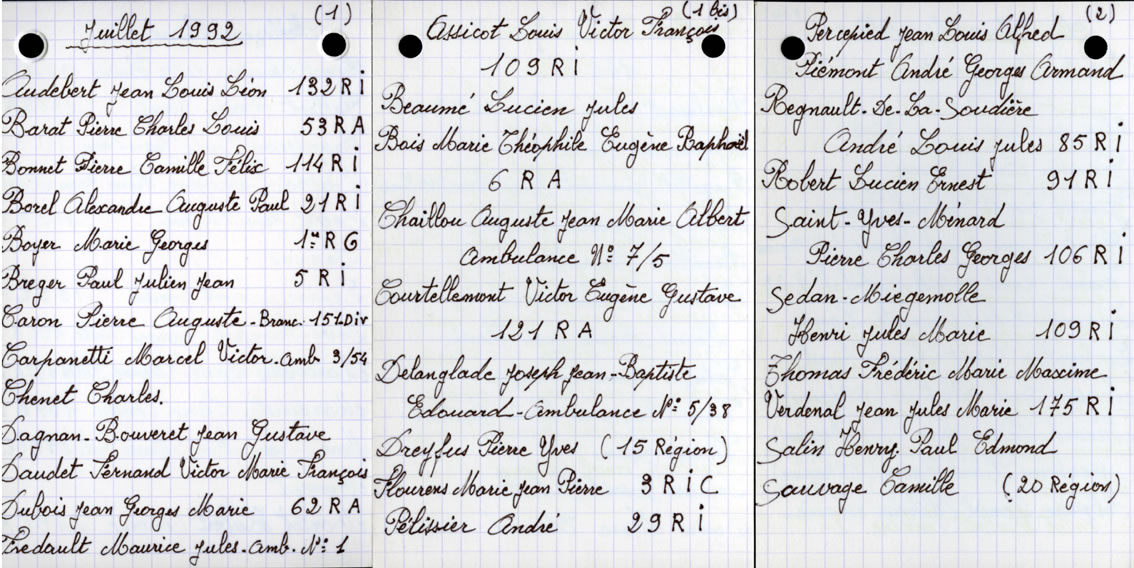 (1)
Juillet 1992
Audebert Jean Louis Léon 132 R I
Barat Pierre Charles Louis 53 R A
Bonnet Pierre Camille Félix 114 R I
Borel Alexandre Auguste Paul 21 R I
Boyer Marie Georges 1er R G
Breger Paul Julien Jean 5 R I
Caron Pierre Auguste - Branc. 151 Div
Carpanetti Marcel Victor - Amb. 3/54
Chenet Charles.
Dagnan-Bouveret Jean Gustave
Daudet Fernand Victor Marie François
Dubois Jean Georges Marie 62 R A
Fredault Maurice Jules - Amb. N° 1
(1 bis)
Assicot Louis Victor François
109 R I
Beaumé Lucien Jules
Bois Marie Théophile Eugène Raphaël
6 R A
Chaillou Auguste Jean Marie Albert
Ambulance N° 7/5
Courtellemont Victor Eugène Gustave
121 R A
Delanglade Joseph Jean-Baptiste
Edouard - Ambulance N° 5/38
Dreyfus Pierre Yves (15 Région)
Flourens Marie Jean Pierre 3 R I C
Pélissier André 29 R I
(2)
Percepied Jean Louis Alfred
Piémont André Georges Armand
Regnault-De-La-Soudière
André Louis Jules 85 R I
Robert Lucien Ernest 91 R I
Saint-Yves-Ménard
Pierre Charles Georges 106 R I
Sedan-Miegemolle
Henri Jules Marie 109 R I
Thomas Frédéric Marie Maxime
Verdenal Jean Jules Marie 175 R I
Salin Henry Paul Edmond
Sauvage Camille (20 Région)